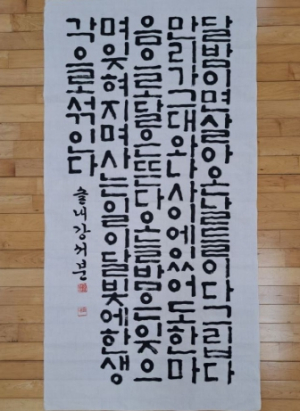 달밤이면살아온날들이다그립다
만리가그대와나사이에있어도한마
음으로달은뜬다오늘밤은잊으
며잊혀지며사는일이달빛에한생
각으로섞인다
솔내강서분